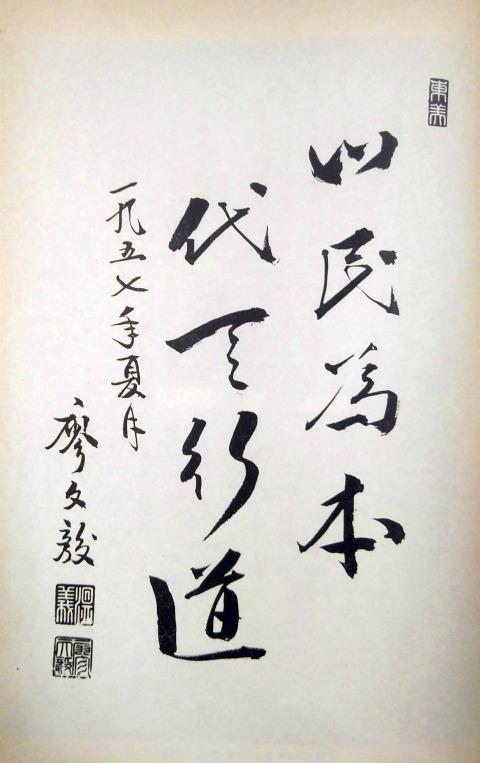 東美
以民為本
代天行道
一九五七年夏月
廖文毅
廖文毅